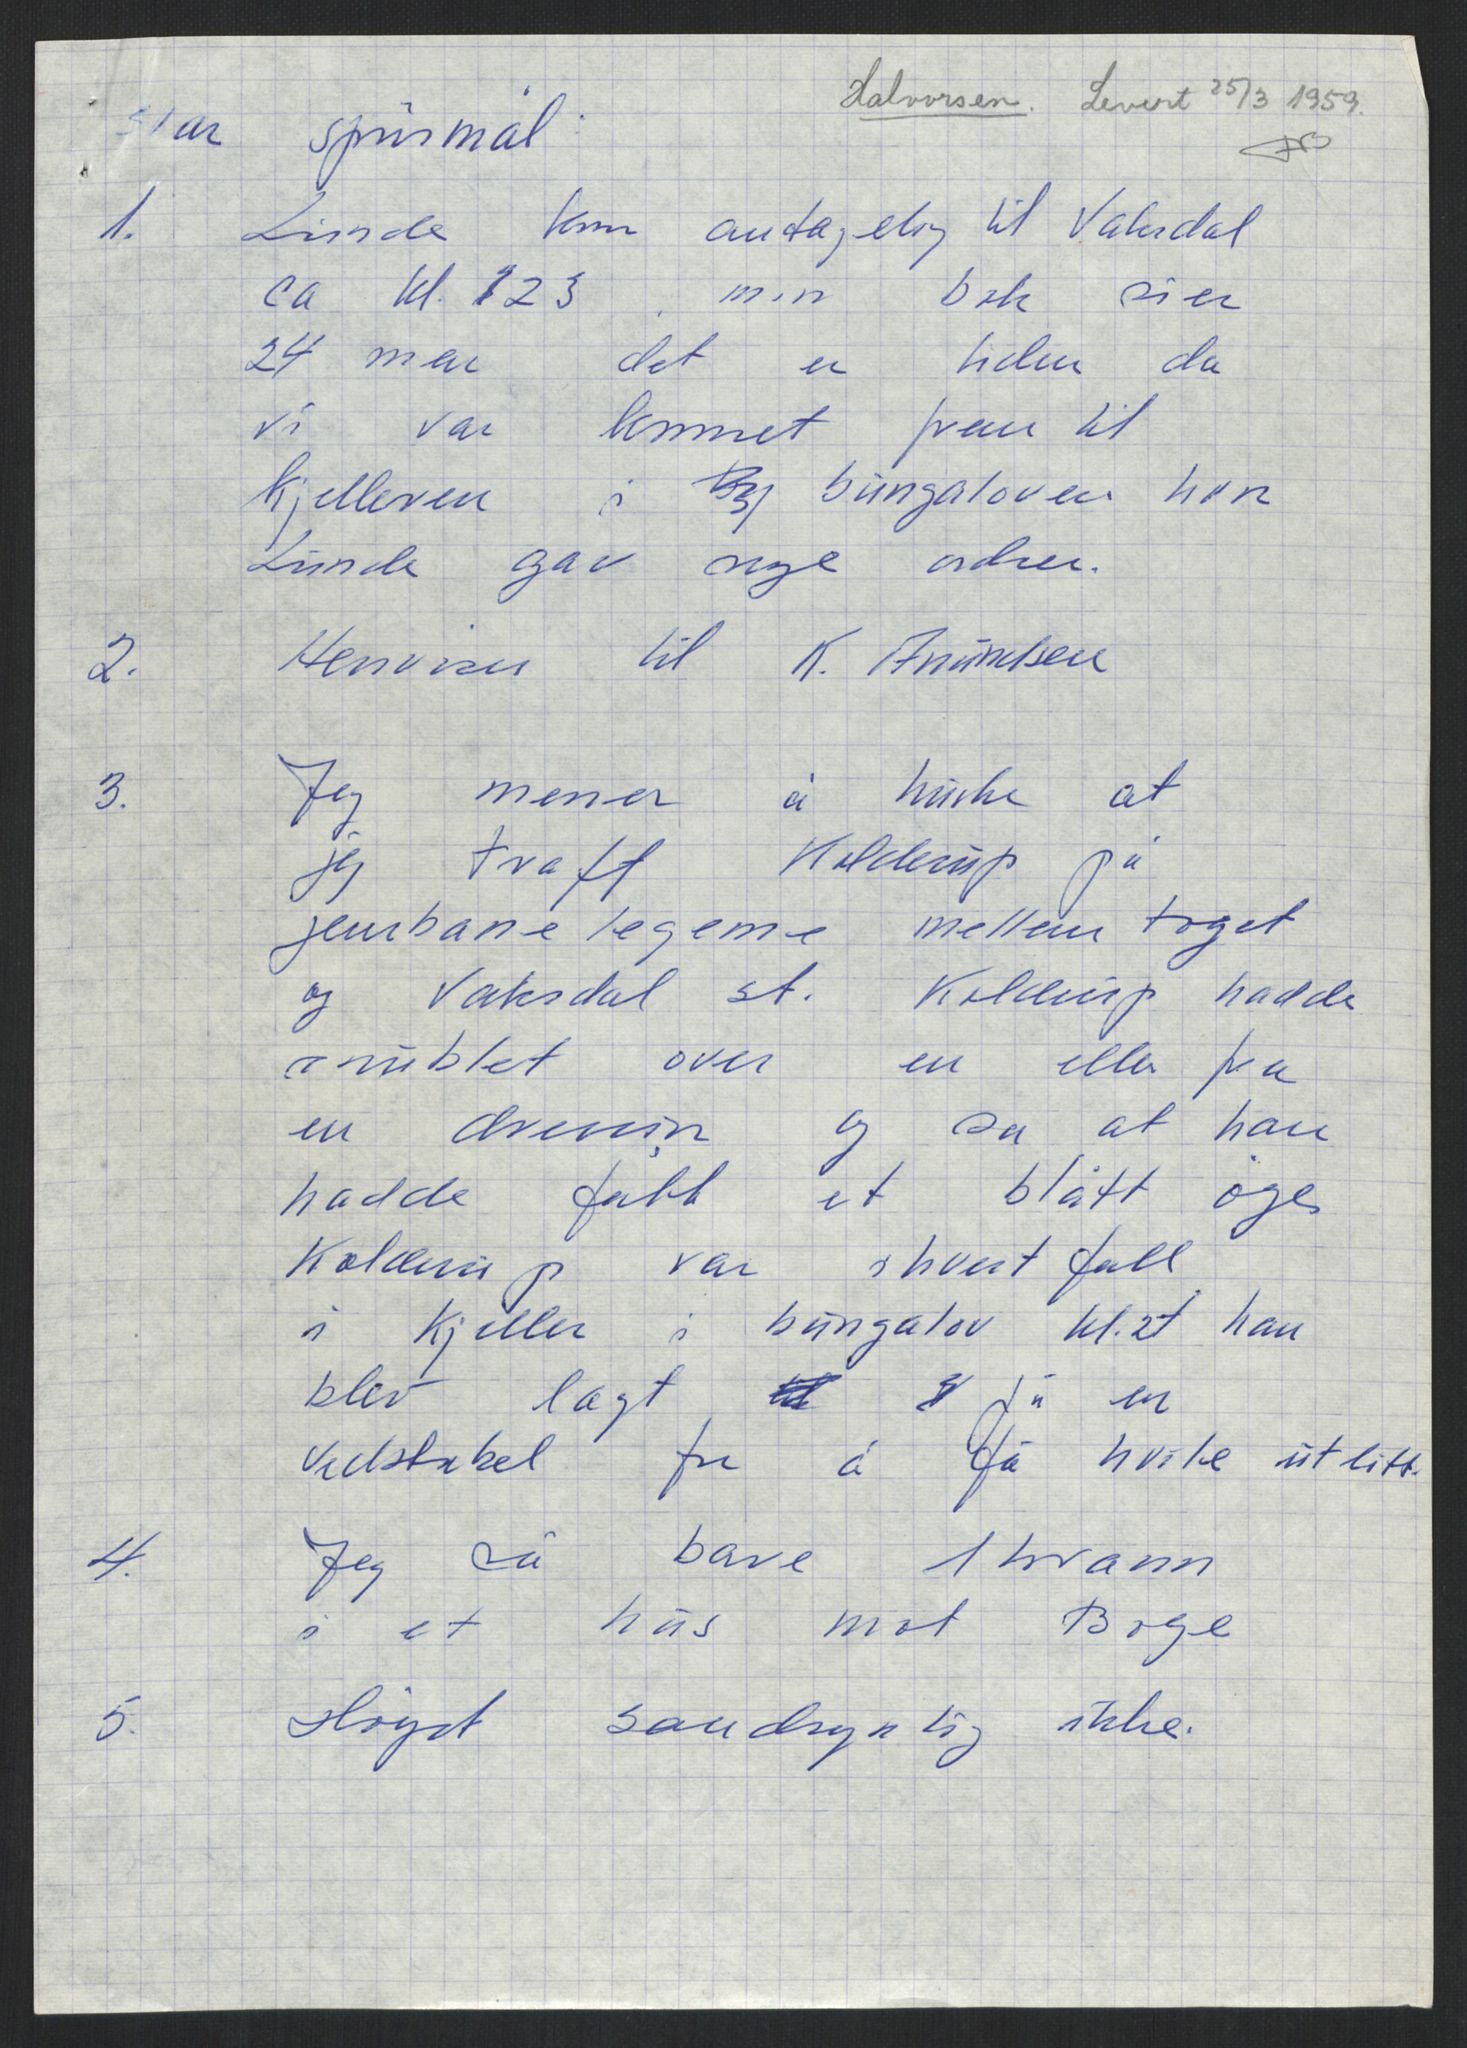 Halvorsen. Levert 25/3 1959.
svar spørsmål:
1. Linde kom antagelig til Vaksdal
ca kl. 23, min bok sier
24 men det er tiden da
vi var kommet frem til
kjelleren i bungaloven hvor
Linde gav nye ordrer.
2. Henviser til K. Knudsen
3. Jeg mener å huske at
jeg traff Kolderup på
jernbanelegeme mellem toget
og Vaksdal st. Kolderup hadde
snublet over en eller fra
en dressin og sa at han
hadde fått et blått öye,
Kolderup var ihvert fall
i kjeller i bungalov kl. 24 han
blev lagt på en
vedstabel for å få hvile ut litt.
4. Jeg så bare 1 brann
i et hus mot Boge
5. Höyst sandsynlig ikke.